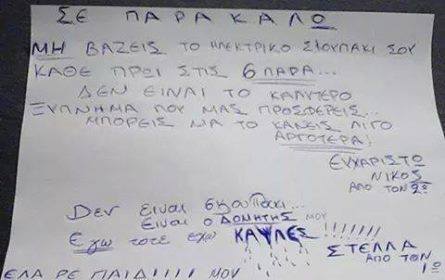 ΣΕ ΠΑΡΑΚΑΛΩ
ΜΗ ΒΑΖΕΙΣ ΤΟ ΗΛΕΚΤΡΙΚΟ ΣΚΟΥΠΑΚΙ ΣΟΥ
ΚΑΘΕ ΠΡΩΙ ΣΤΙΣ 6 ΠΑΡΑ...
ΔΕΝ ΕΙΝΑΙ ΤΟ ΚΑΛΥΤΕΡΟ
ΞΥΠΝΗΜΑ ΠΟΥ ΜΑΣ ΠΡΟΣΦΕΡΕΙΣ...
ΜΠΟΡΕΙΣ ΝΑ ΤΟ ΚΑΝΕΙΣ ΛΙΓΟ
ΑΡΓΟΤΕΡΑ!
ΕΥΧΑΡΙΣΤΩ
ΝΙΚΟΣ
ΑΠΟ ΤΟΝ 2º
Δεν ειναι σκουπακι...
Ειναι ο ΔΟΝΗΤΗΣ μου
Εγω τοτε εχω ΚΑΥΛΕΣ!!!!!!!
ΣΤΕΛΛΑ
ΑΠΟ ΤΟΝ
1º
ΕΛΑ ΡΕ ΠΑΙΔΙ!!!! ΜΟΥ